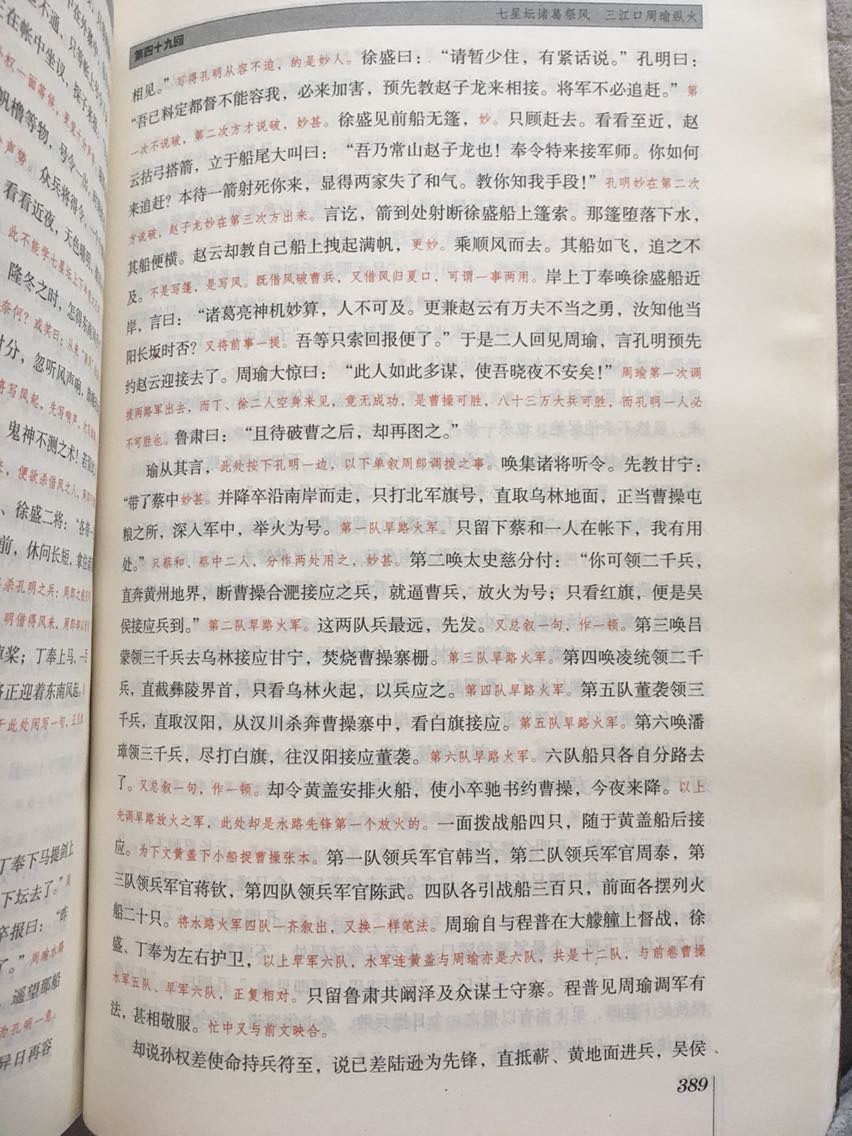 七星坛诸葛祭风 三江口周瑜纵火
第四十九回
相见。”写得孔明从容不迫，的是妙人。徐盛曰：“请暂少住，有紧话说。”孔明曰：
“吾已料定都督不能容我，必来加害，预先教赵子龙来相接。将军不必追赶。”第
一次不说破，第二次方才说破，妙甚。徐盛见前船无篷，妙。只顾赶去。看看至近，赵
云拈弓搭箭，立于船尾大叫曰：“吾乃常山赵子龙也！奉令特来接军师。你如何
来追赶？本待一箭射死你来，显得两家失了和气。教你知我手段！”孔明妙在第二次
方说破，赵子龙妙在第三次方出来。言讫，箭到处射断徐盛船上篷索。那篷堕落下水，
其船便横。赵云却教自己船上拽起满帆，更妙。乘顺风而去。其船如飞，追之不
及。不是写篷，是写风。既借风破曹兵，又借风归夏口，可谓一事两用。岸上丁奉唤徐盛船近
岸，言曰：“诸葛亮神机妙算，人不可及。更兼赵云有万夫不当之勇，汝知他当
阳长坂时否？又将前事一提。吾等只索回报便了。”于是二人回见周瑜，言孔明预先
约赵云迎接去了。周瑜大惊曰：“此人如此多谋，使吾晓夜不安矣！”周瑜第一次调
拨两路军出去，而丁、徐二人空身来见，竟无成功，是曹操可胜，八十三万大兵可胜，而孔明一人必
不可胜也。鲁肃曰：“且待破曹之后，却再图之。”
瑜从其言，此处按下孔明一边，以下单叙周郎调拨之事。唤集诸将听令。先教甘宁：
“带了蔡中妙甚。并降卒沿南岸而走，只打北军旗号，直取乌林地面，正当曹操屯
粮之所，深入军中，举火为号。第一队旱路火军。只留下蔡和一人在帐下，我有用
处。”只蔡和、蔡中二人，分作两处用之，妙甚。第二唤太史慈分付：“你可领二千兵，
直奔黄州地界，断曹操合淝接应之兵，就逼曹兵，放火为号；只看红旗，便是吴
侯接应兵到。”第二队旱路火军。这两队兵最远，先发。又总叙一句，作一顿。第三唤吕
蒙领三千兵去乌林接应甘宁，焚烧曹操寨栅。第三队旱路火军。第四唤凌统领二千
兵，直截彝陵界首，只看乌林火起，以兵应之。第四队旱路火军。第五队董袭领三
千兵，直取汉阳，从汉川杀奔曹操寨中，看白旗接应。第五队旱路火军。第六唤潘
璋领三千兵，尽打白旗，往汉阳接应董袭。第六队旱路火军。六队船只各自分路去
了。又总叙一句，作一顿。却令黄盖安排火船，使小卒驰书约曹操，今夜来降。以上
先调旱路放火之军，此处却是水路先锋第一个放火的。一面拨战船四只，随于黄盖船后接
应。为下文黄盖下小船捉曹操张本。第一队领兵军官韩当，第二队领兵军官周泰，第
三队领兵军官蒋钦，第四队领兵军官陈武。四队各引战船三百只，前面各摆列火
船二十只。将水路火军四队一齐叙出，又换一样笔法。周瑜自与程普在大艨艟上督战，徐
盛、丁奉为左右护卫，以上旱军六队，水军连黄盖与周瑜亦是六队，共是十二队，与前卷曹操
水军五队、旱军六队，正复相对。只留鲁肃共阚泽及众谋士守寨。程普见周瑜调军有
法，甚相敬服。忙中又与前文映合。
却说孙权差使命持兵符至，说已差陆逊为先锋，直抵蕲、黄地面进兵，吴侯
389